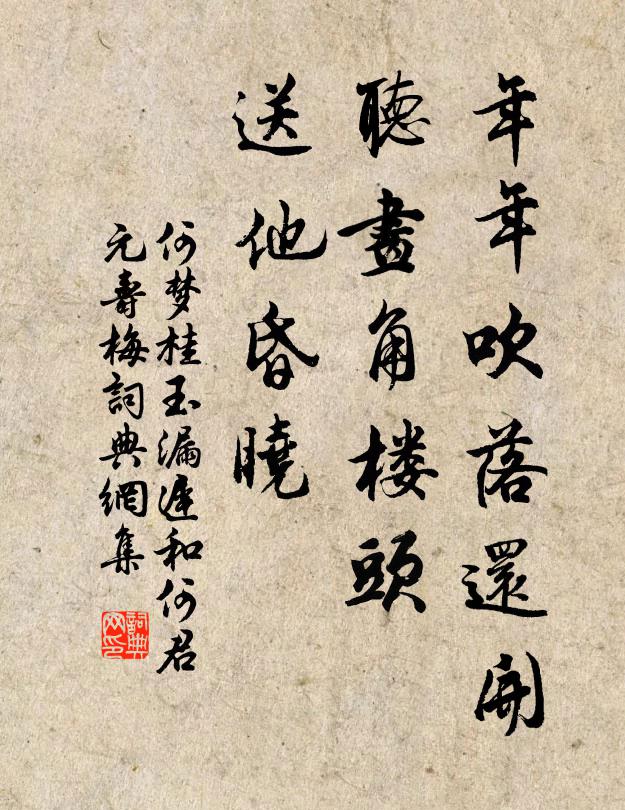 年年吹落還開
聽畫角楼頭
送他昏曉
何梦桂玉漏遲和何君
元壽梅詞典網集
詞典网印